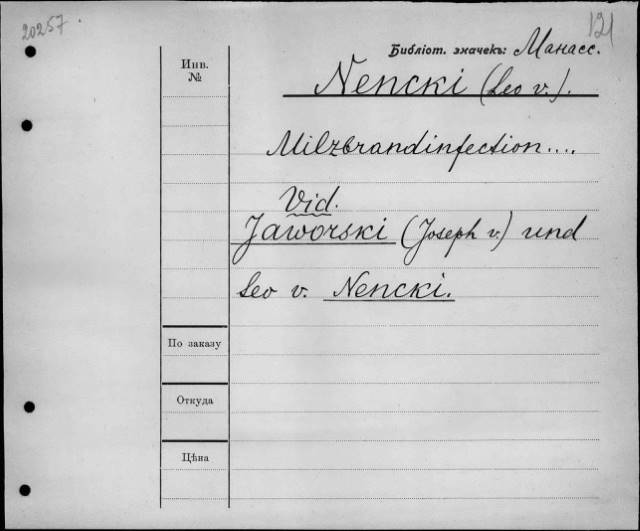 20257.
121
Библіот. значекъ: Манасс.
Инв.
№
Nencki (Leo v.).
Milzbrandinfection....
Vid.
Jaworski (Joseph v.) und
Leo v. Nencki.
По заказу
Откуда
Цѣна